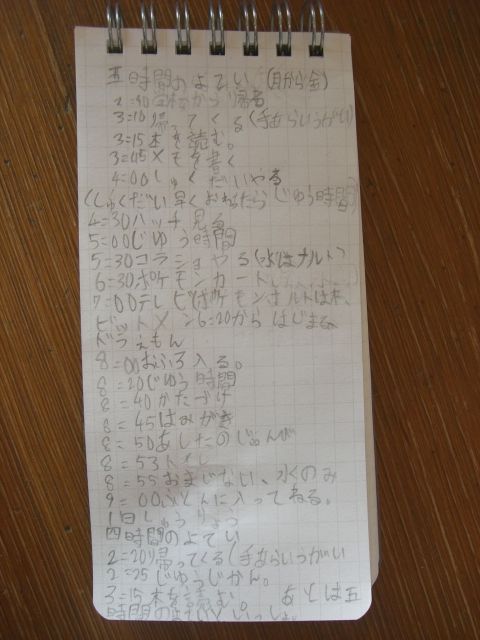 五時間のよてい (月から金)
2=40学校から帰る
3=10帰ってくる(手あらいうがい)
3=15本を読む。
3=45メモを書く
4=00しゅくだいやる
(しゅくだい早くおわったらじゆう時間)
4=30ハッチ見る
5=00じゆう時間
5=30コラショやる(水はナルト)
6=30ポケモンカード
7=00テレビポケモンナルトは木、
6=20からはじまる
ドラえもん
8=00おふろ入る。
8=20じゆう時間
8=40かたづけ
8=45はみがき
8=50あしたのじゅんび
8=53トイレ
8=55おまじない、水のみ
9=00ふとんに入ってねる。
1日しゅうりょう
四時間のよてい
2=20帰ってくる(手あらいうがい
2=25じゆうじかん。
3=15本を読む。 あとは五
時間のよていといっしょ。